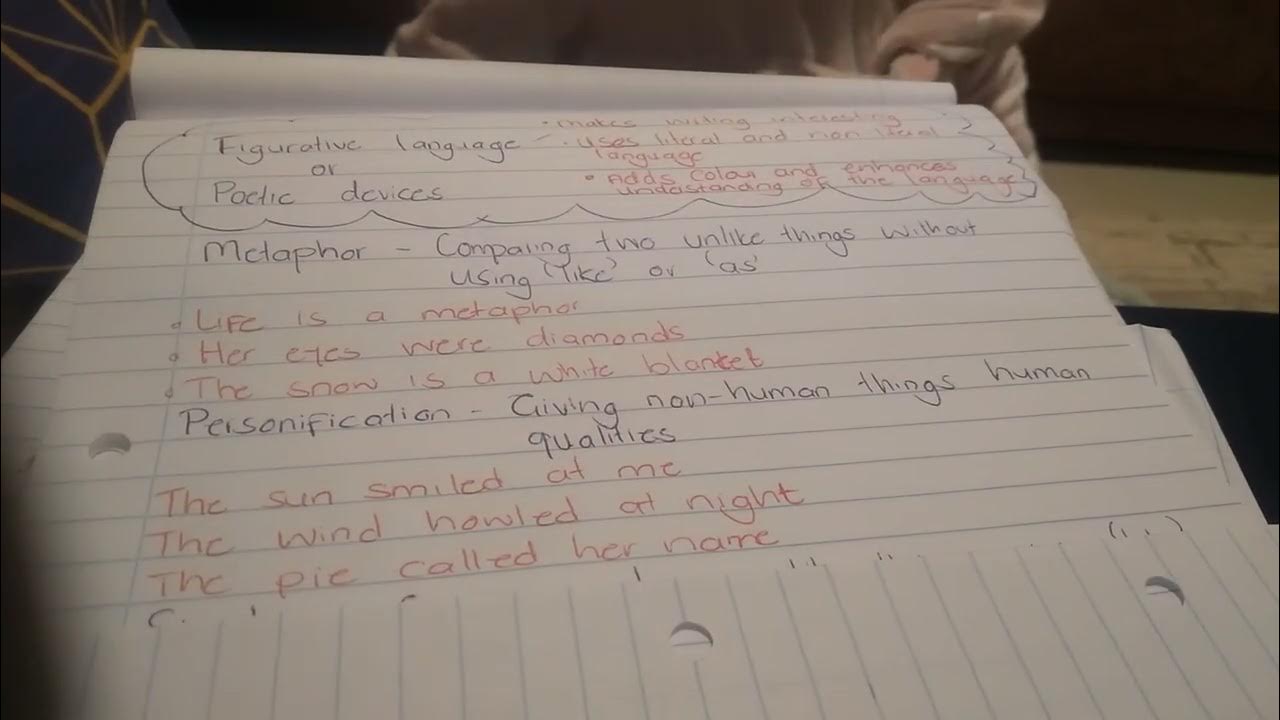 Figurative language - • makes writing interesting
• uses literal and non literal
language
or
• Adds Colour and enhances
understanding of the language
Poetic devices
Metaphor - Comparing two unlike things without
using 'like' or 'as'
• Life is a metaphor
• Her eyes were diamonds
• The snow is a white blanket
Personification - Giving non-human things human
qualities
The sun smiled at me
The wind howled at night
The pie called her name